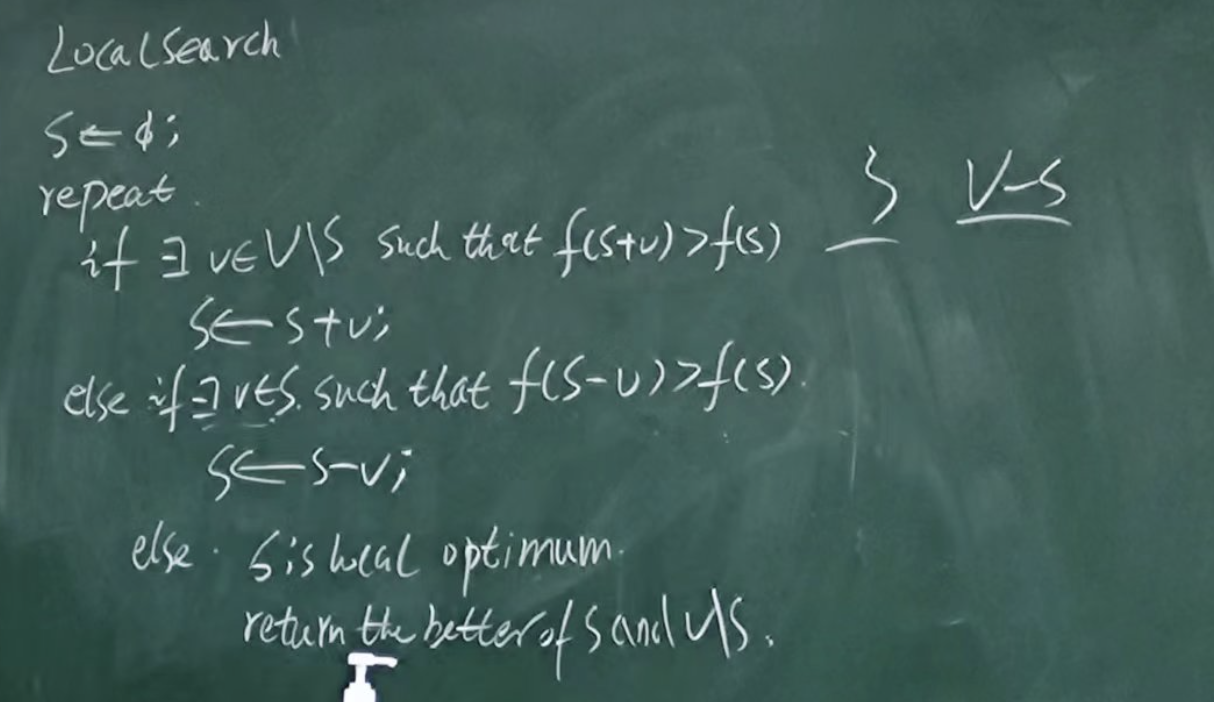 LocalSearch
S ← ϕ;
repeat.
if ∃ v∈V\S such that f(S+v)>f(S)
S ← S+v;
else if ∃ v∈S. such that f(S-v)>f(S).
S ← S-v;
else. S is local optimum.
return the better of S and V\S.
S V-S